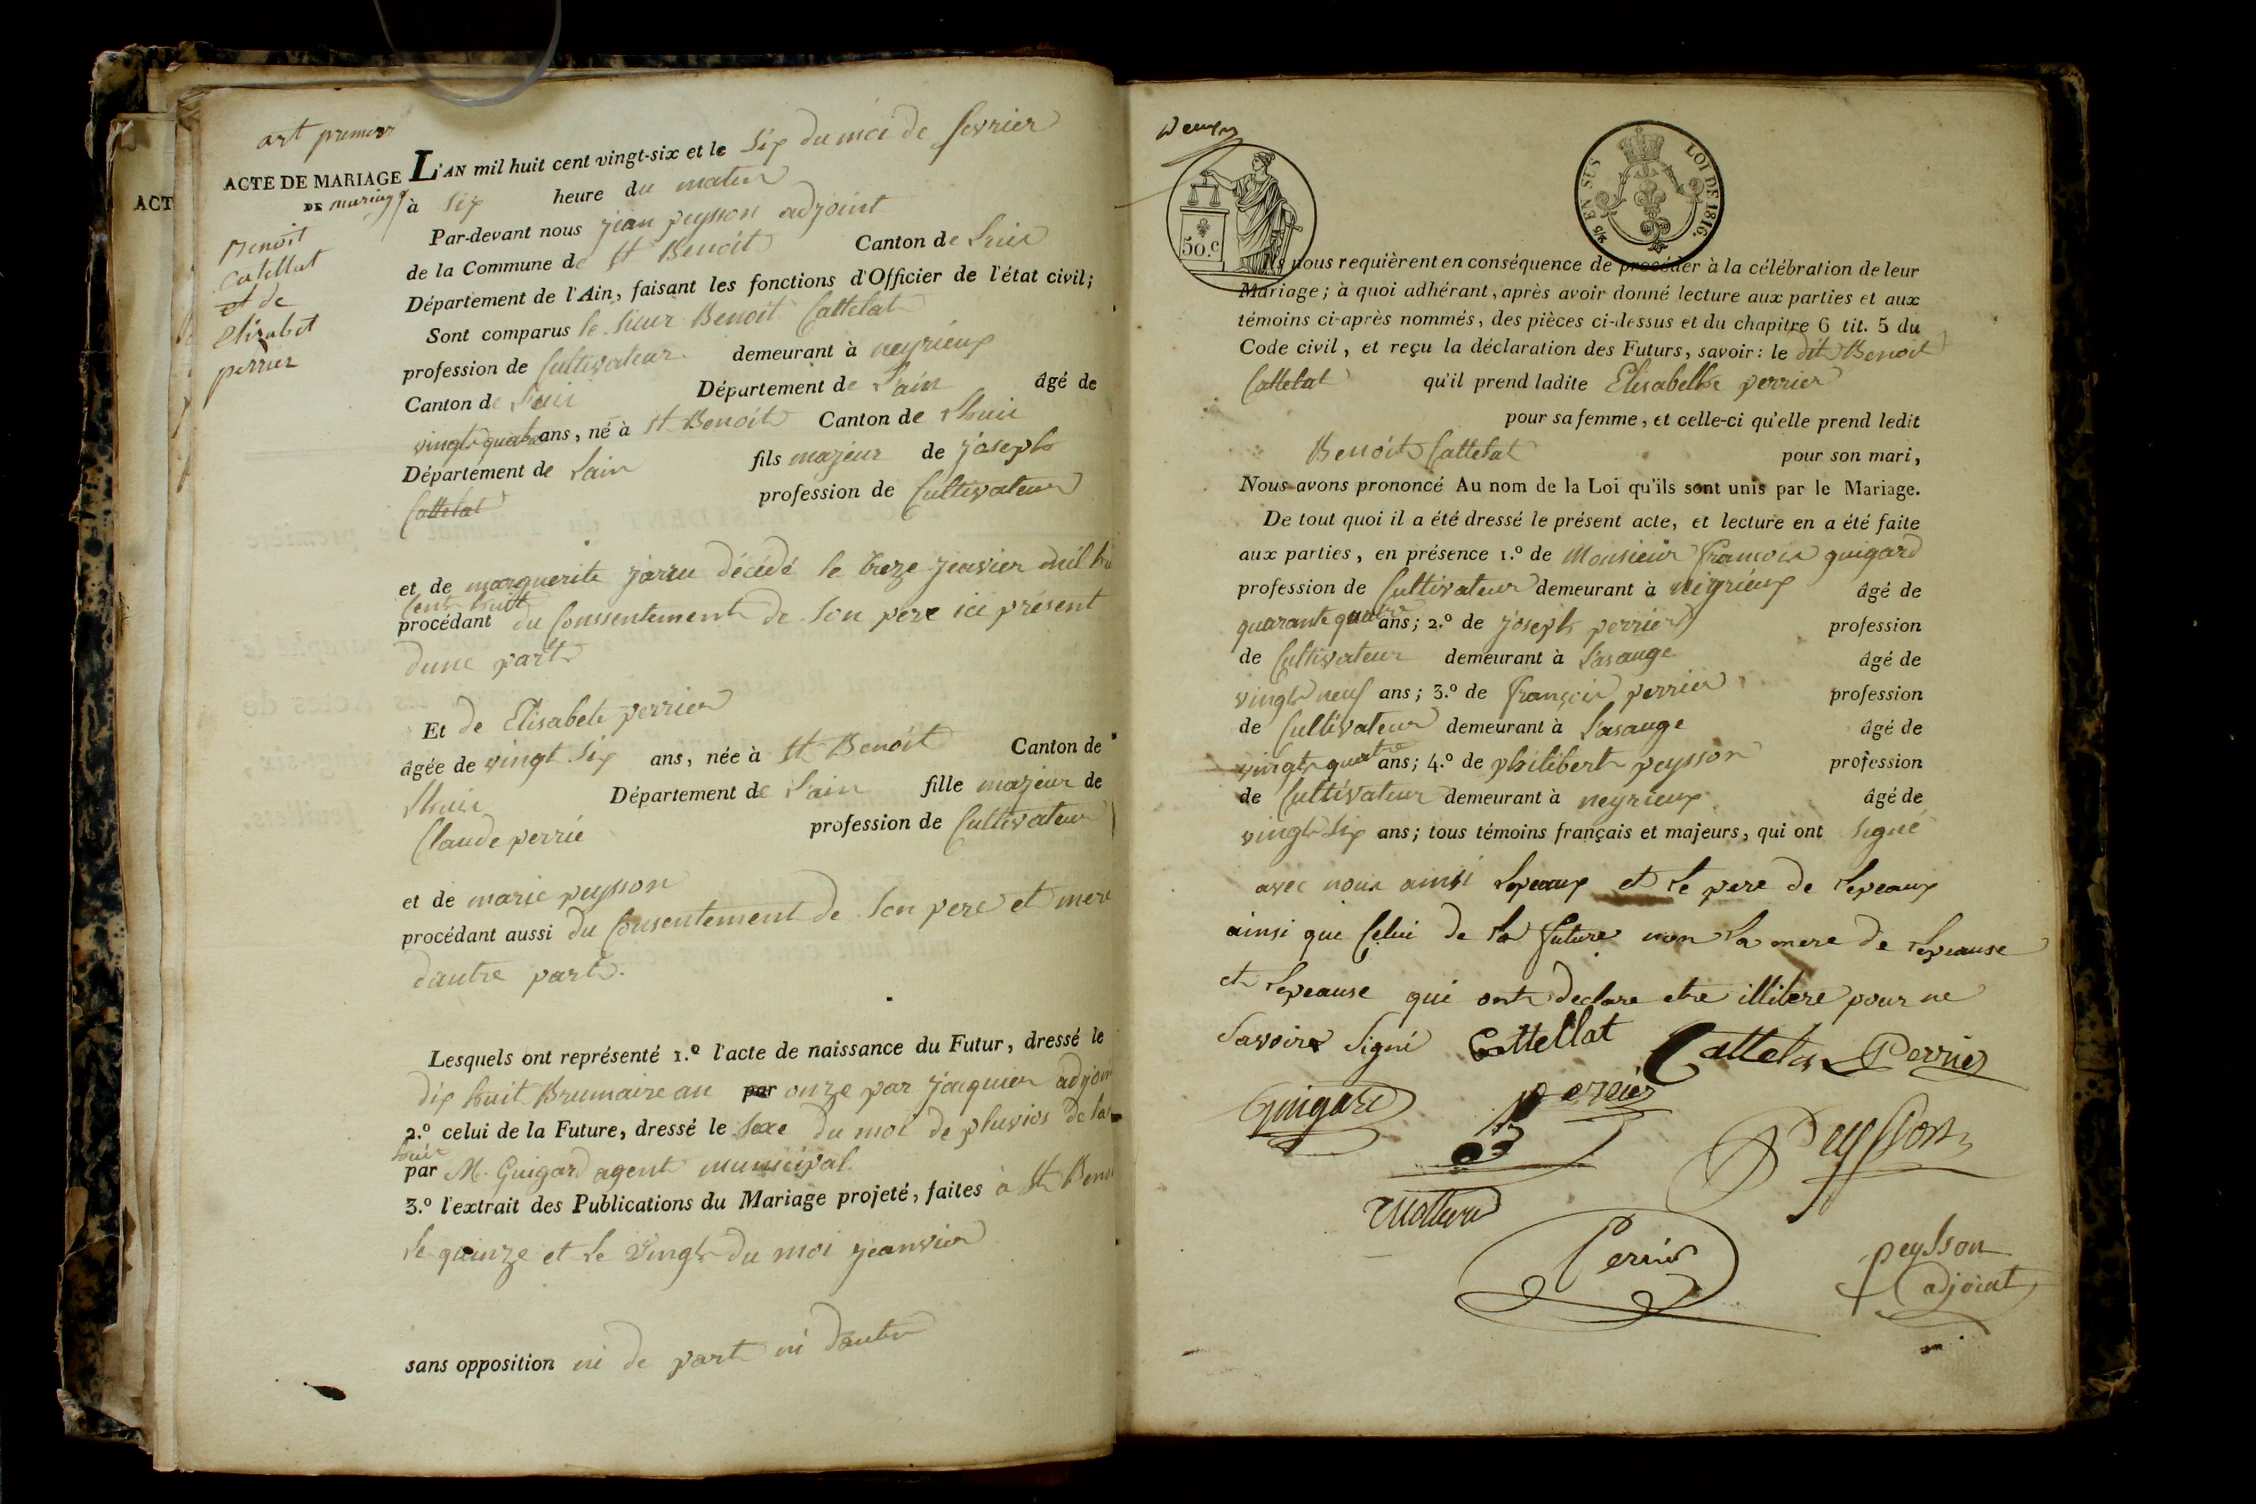 art premier
ACTE DE MARIAGE
DE mariage
Benoit
Catellat
et de
Elizabet
perrier
ACT
L'AN mil huit cent vingt-six et le Six du moi de fevrier
à Six heure du matin
Par-devant nous jean peysson adjoint
de la Commune de St Benoit Canton de Luis
Département de l'Ain, faisant les fonctions d'Officier de l'état civil;
Sont comparus le Sieur Benoit Cattelat
profession de Cultivateur demeurant à neyrieux
Canton de Département de Lain âgé de
vingt quatre ans, né à St Benoit Canton de Lhuis
Département de Lain fils majeur de joseph
Cattelat profession de Cultivateur
et de marguerite jarru décédé le treze jenvier mil hui
Cent huit
procédant du Conssentement de Son père ici présent
dune part
Et de Elisabete perrier
âgée de vingt Six ans, née à St Benoit Canton de
Lhuis Département de Lain fille majeur de
Claude perrié profession de Cultivateur
et de marie peysson
procédant aussi du Consentement de Son pere et mere
dautre part.
Lesquels ont représenté 1.º l'acte de naissance du Futur, dressé le
dix huit Brumaire an par onze par jaquier adjoin
2.º celui de la Future, dressé le Seze du moi de pluvios de lan
huit
par M. Guigard agent municipal
3.º l'extrait des Publications du Mariage projeté, faites à St Beno
Le quinze et Le vingt du moi jeanvier
sans opposition ni de part ni dautre
Deuxm
50.c
2/5 EN SUS LOI DE 1816.
Ils nous requièrent en conséquence de procéder à la célébration de leur
Mariage; à quoi adhérant, après avoir donné lecture aux parties et aux
témoins ci-après nommés, des pièces ci-dessus et du chapitre 6 tit. 5 du
Code civil, et reçu la déclaration des Futurs, savoir: le dit Benoit
Cattelat qu'il prend ladite Elisabethe perrier
pour sa femme, et celle-ci qu'elle prend ledit
Benoit Cattelat pour son mari,
Nous avons prononcé Au nom de la Loi qu'ils sont unis par le Mariage.
De tout quoi il a été dressé le présent acte, et lecture en a été faite
aux parties, en présence 1.º de Monsieur francois guigard
profession de Cultivateur demeurant à neigrieux âgé de
quarante quatre ans; 2.º de joseph perrier profession
de Cultivateur demeurant à Lasauge âgé de
vingt neuf ans; 3.º de françois perrier profession
de Cultivateur demeurant à Lasauge âgé de
vingt quatre ans; 4.º de philibert peysson profession
de Cultivateur demeurant à neyrieux âgé de
vingt Six ans; tous témoins français et majeurs, qui ont Signé
avec nous ainsi Lepeoux et Le pere de Lepeaux
ainsi que Celui de La future non La mere de Lepeause
et Lepeause qui ont declare etre illitere pour ne
Savoire Signé Cattellat Cattelat Perrier
Guigard perrier
Peysson
Perrier
peysson
adjoint